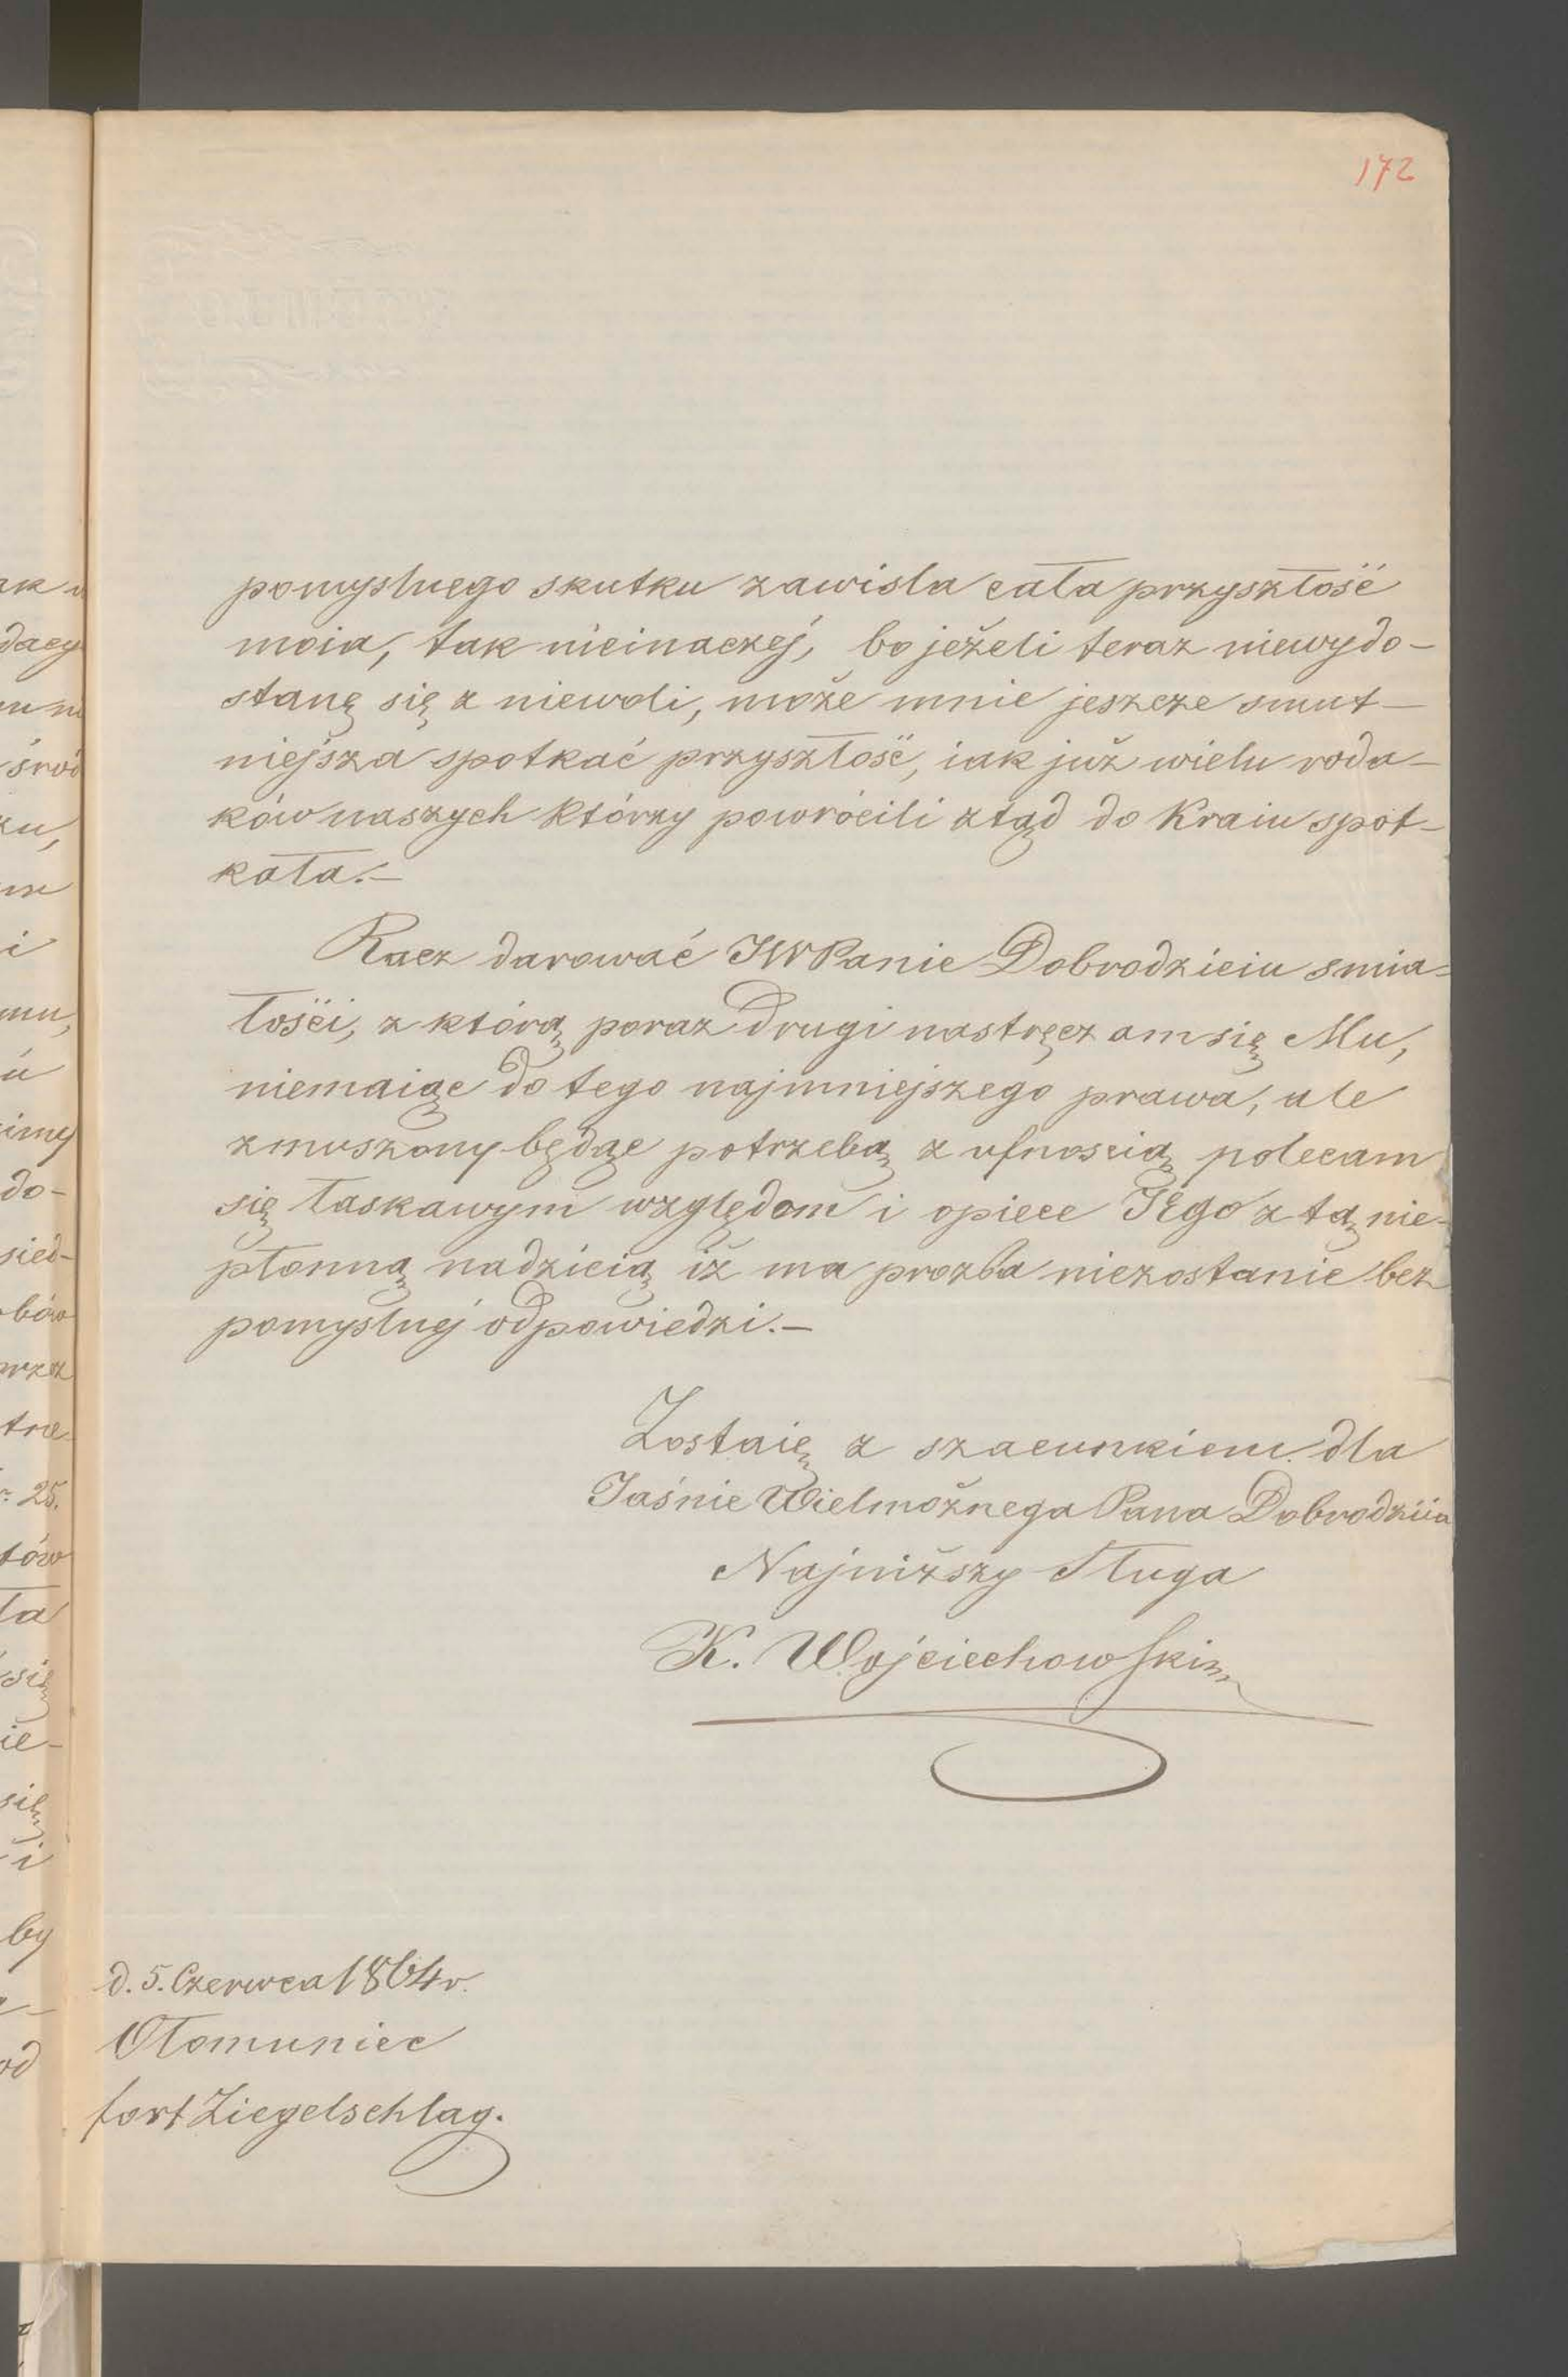 172
pomyslnego skutku zawisła cała przyszłość
moia, tak nieinaczej, bo jeżeli teraz niewydo-
stanę się z niewoli, może mnie jeszcze smut-
niejsza spotkać przyszłość, iak już wielu roda-
ków naszych którzy powrócili ztąd do Kraiu spot-
kała.-
Racz darować JWPanie Dobrodzieiu smia-
łości, z którą poraz drugi nastręczam się Mu,
niemaiąc do tego najmniejszego prawa, ale
zmuszony będąc potrzebą z ufnoscią polecam
się łaskawym względom i opiece Jego z tą nie-
płonną nadzieią iż ma prozba niezostanie bez
pomyslnéj odpowiedzi.-
Zostaię z szacunkiem dla
Jaśnie Wielmożnego Pana Dobrodziia
Najniższy Sługa
K. Wojciechowski
d. 5. Czerwca 1864 r.
Ołomuniec
fort Ziegelschlag.